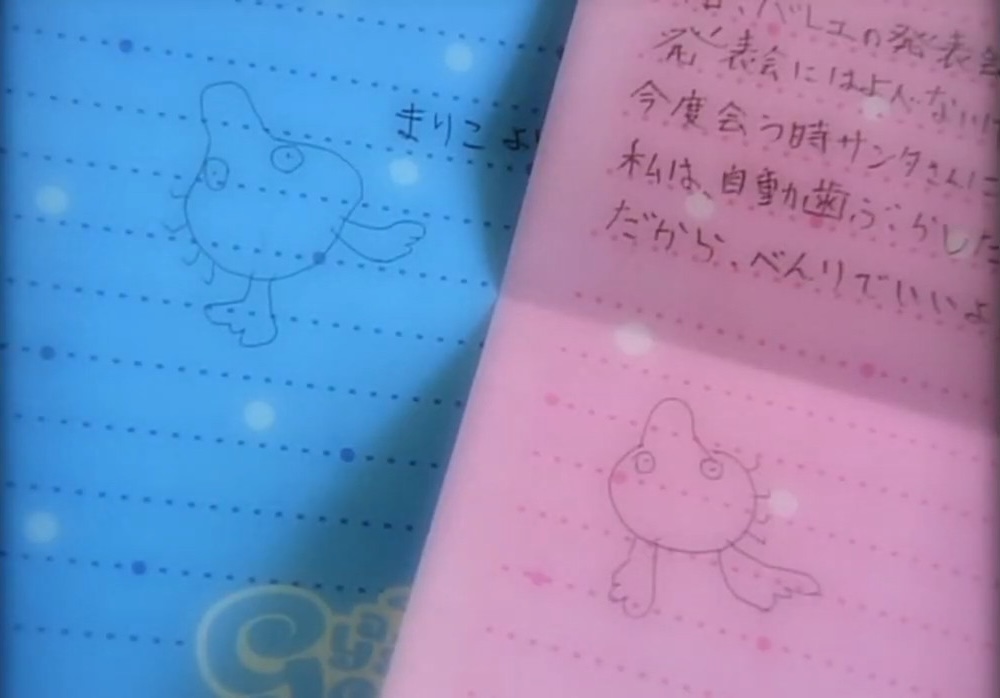 まりこより
バレエの発表会
発表会にはよんないけ
今度会う時サンタさんに
私は、自動歯ぶらした
だから、べんりでいいよ